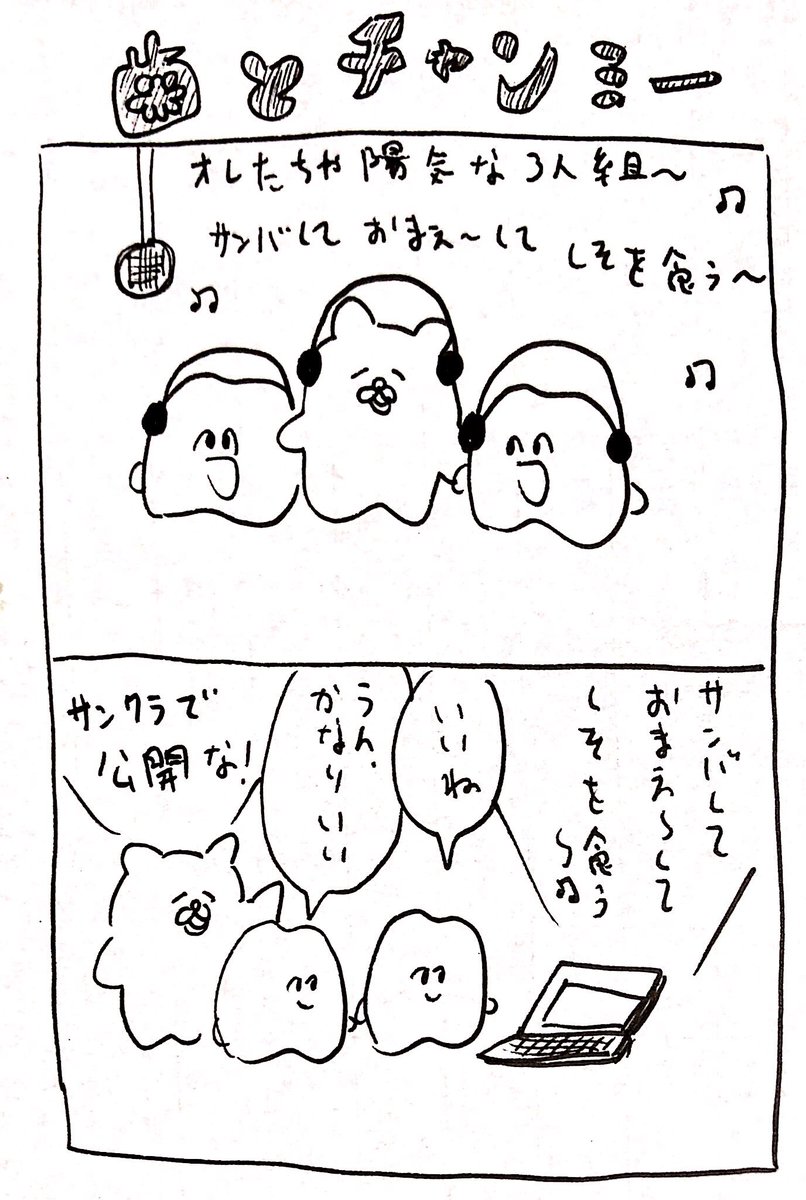 歯とチャンミー
オレたちゃ陽気な3人組〜
サンバして おまえ〜して しそを食う〜
サンバして
おまえ〜して
しそを食う〜
いいね
うん、
かなりいい
サンクラで
公開な!